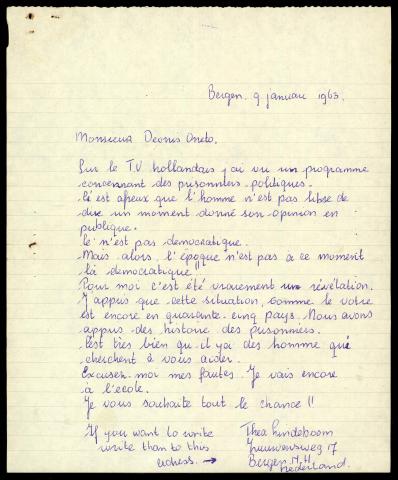 Bergen. 9 januari 1963.
Monsieur Dennis Oneto,
Sur le TV hollandais j'ai vu un programme
concernant des prisonniers politiques.
C'est afreux que l'homme n'est pas libre de
dire un moment donné son opinion en
publique.
Ce n'est pas democratique.
Mais alors, l'époque n'est pas à ce moment
là democratique"
Pour moi c'est été vraiment une révélation.
J'appris que cette situation, comme le votre
est encore en quarante-cinq pays. Nous avons
appris des histoire des prisonniers.
C'est très bien qu'il y ai des homme qui
cherchent à vous aider.
Excusez-moi mes fautes. Je vais encore
à l'école.
Je vous souhaite tout le chance!!
If you want to write
write than to this
adress. →
Thea Lindeboom
7
Bergen N.H
Nederland.